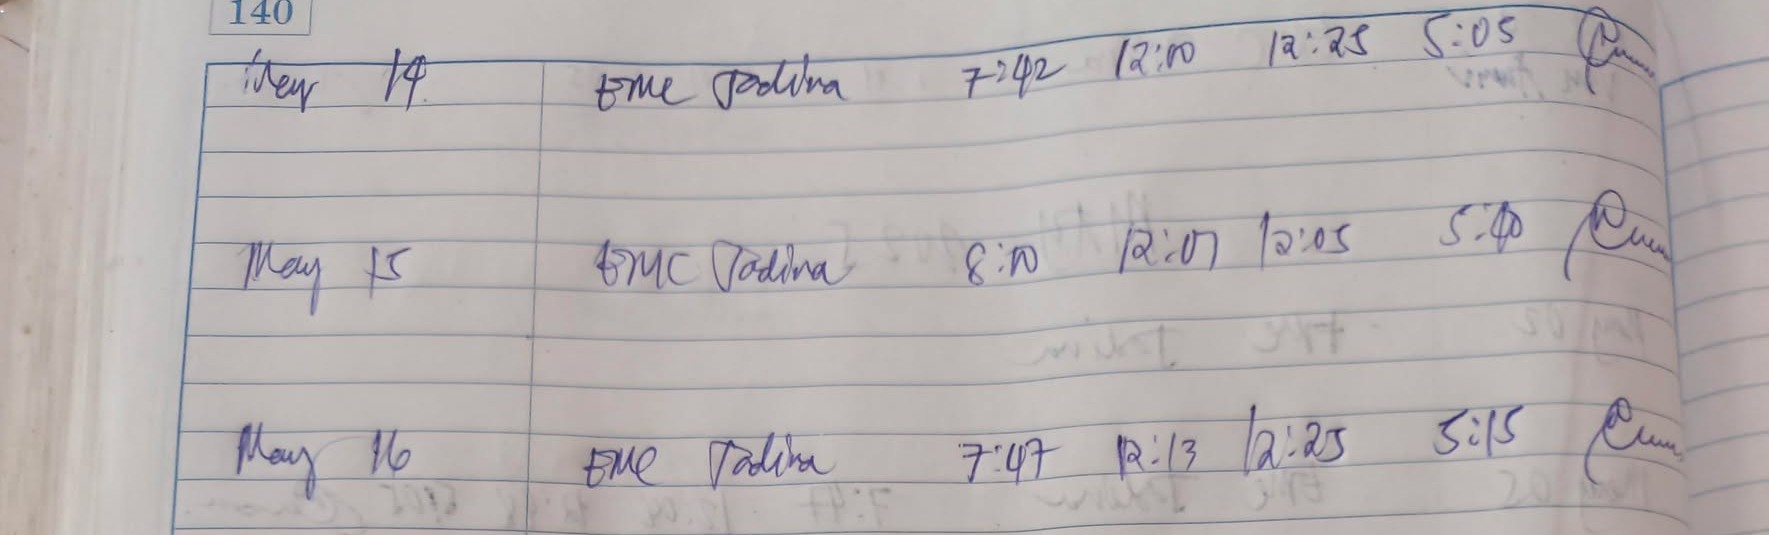 140
May 14 EMC Jadina 7:42 12:00 12:25 5:05
May 15 EMC Jadina 8:00 12:01 12:05 5:40
May 16 EMC Jadina 7:47 12:13 12:25 5:15